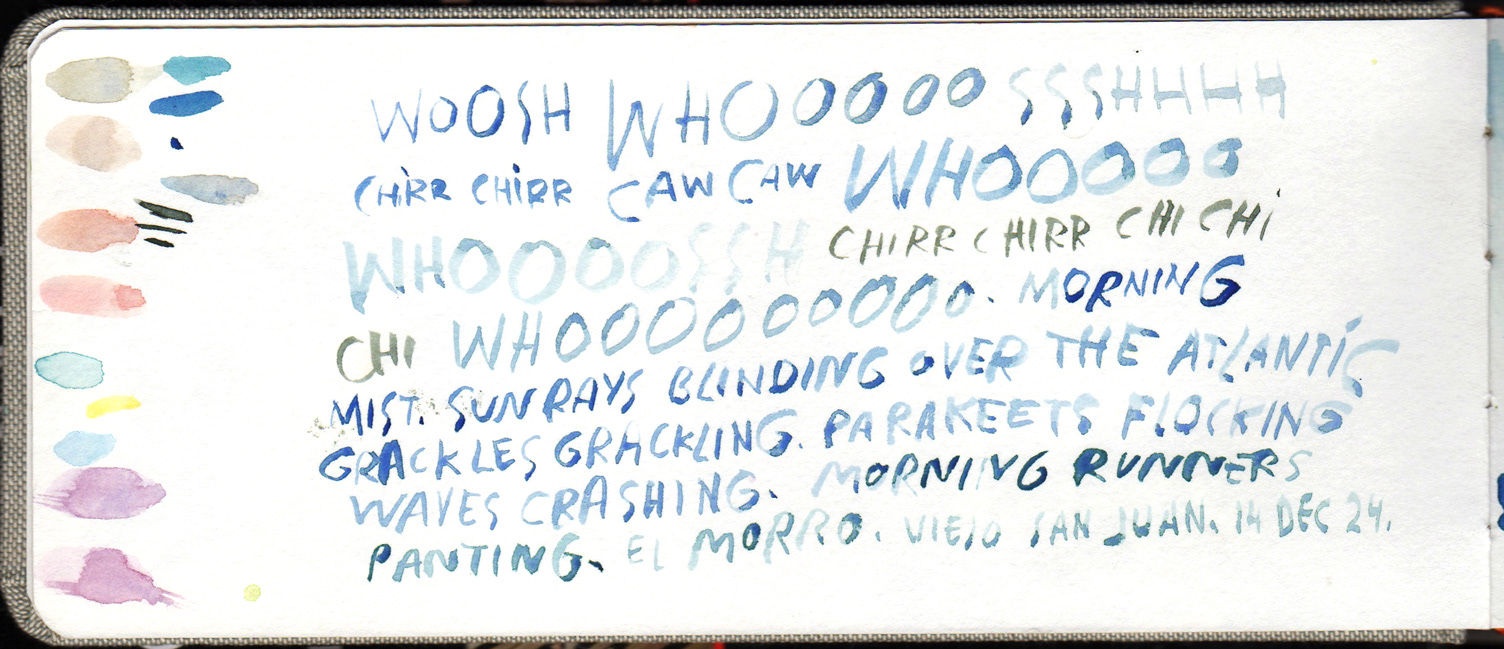 WOOSH WHOOOOO SSSHHHH
CHIRR CHIRR CAW CAW WHOOOOO
WHOOOOSSH CHIRR CHIRR CHI CHI
CHI WHOOOOOOOOO. MORNING
MIST. SUN RAYS BLINDING OVER THE ATLANTIC
GRACKLES GRACKLING. PARAKEETS FLOCKING
WAVES CRASHING. MORNING RUNNERS
PANTING. EL MORRO. VIEJO SAN JUAN. 14 DEC 24.